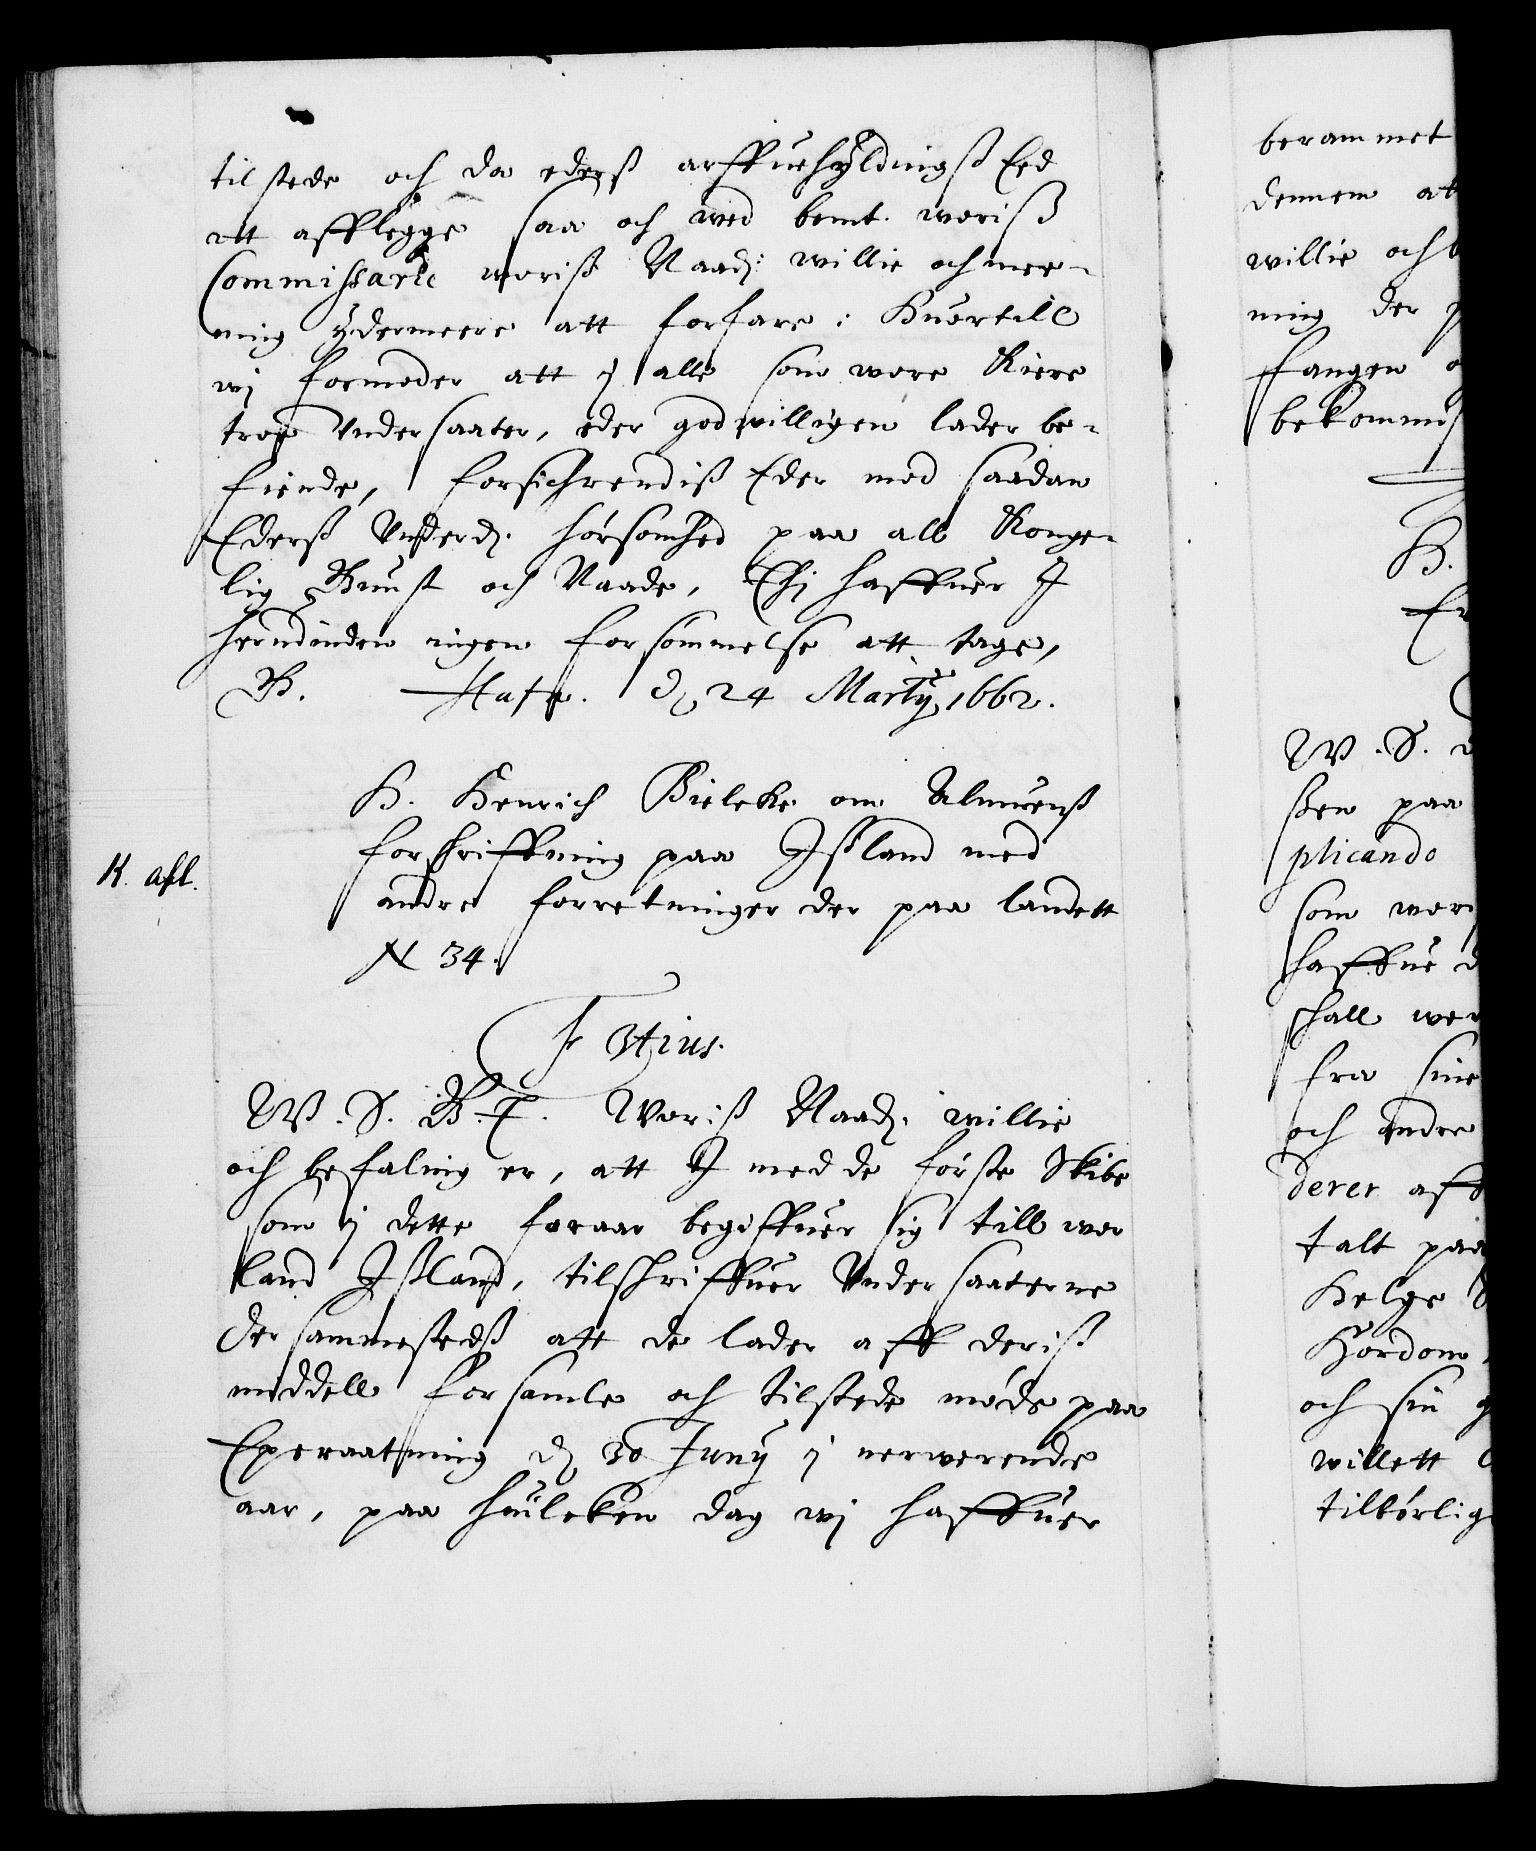 tilstede och da ederß arffuehyldingß Eed
att afflegge saa och wed bemt. woriß
Commissarie woriß Naad: willie och mee-
ning ydermeere att forfare: Huortill
wj formoder att j alle som wore Kiere
troe Vndersaater, eder godwilligen lader be-
finde, forsichrendiß Eder med saadan
Ederß Vnderd. hørsomhed paa all Konge-
lig Gunst och Naade, Thj haffuer I
herudinden ingen forsømmelse att tage,
B. Hafn. d. 24 Martij 1662.
H. Henrich Bielcke om Almuenß
forschriffning paa Ißland med
andre forretninger der paa landett
N 34.
K. afl.
F 3tius.
W. S. G. T. Woriß Naad. willie
och befaling er, att I med de første Skibe
som j dette foraar begiffuer sig till wor
land Ißland, tilschriffuer Vndersaaterne
dersammestedß att de lader aff deriß
middell forsamle och tilstede møde paa
Exeraatning d. 30 Juny j nerwerende
aar, paa huilcken dag wj haffuer
berammet
dennem att
willie och
ning der
fangen
bekommis
H.
W. S.
ßen paa
plicando
som wor
haffue
schall wer
fra sine
och andre
derer aff
talt paa
Helge
Hordom
och sin
willett
tilbørlig